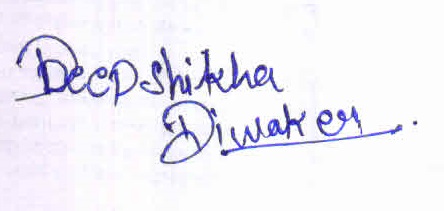 Deepshikha
Diwaker.